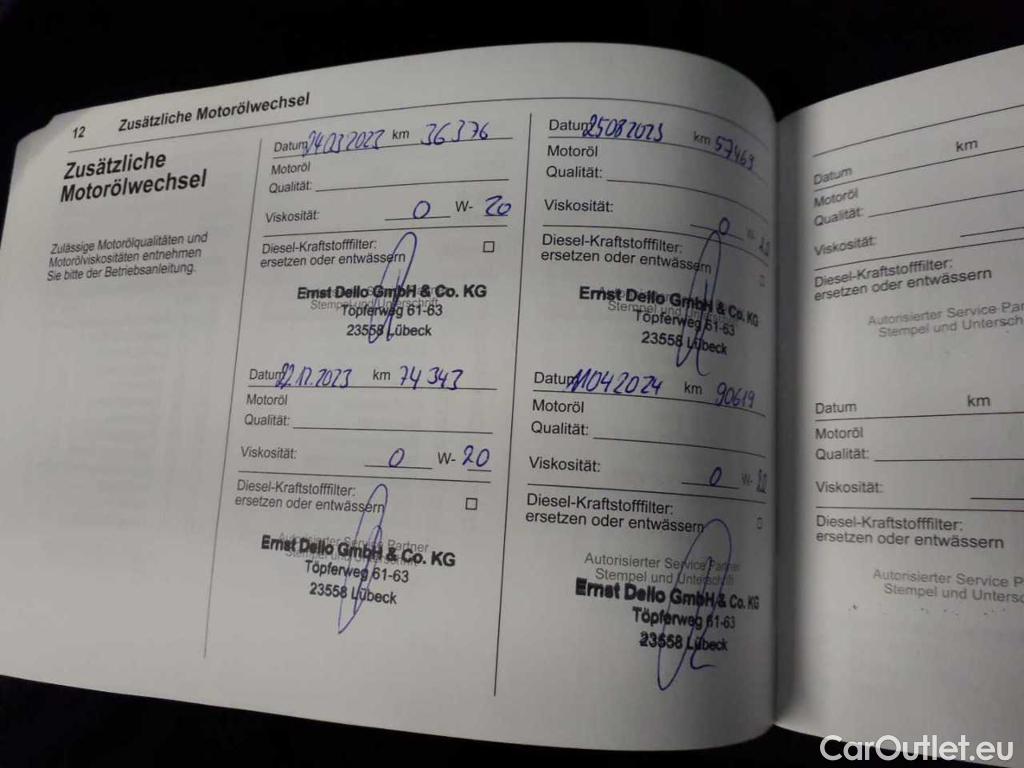 12 Zusätzliche Motorölwechsel
Zusätzliche
Motorölwechsel
Zulässige Motorölqualitäten und
Motorölviskositäten entnehmen
Sie bitte der Betriebsanleitung.
Datum 24032023 km 36376
Motoröl
Qualität:
Viskosität: 0 W- 20
Diesel-Kraftstofffilter:
ersetzen oder entwässern
Ernst Dello GmbH & Co. KG
Stempel und Unterschrift
Töpferweg 61-63
23558 Lübeck
Datum 22.12.2023 km 74343
Motoröl
Qualität:
Viskosität: 0 W- 20
Diesel-Kraftstofffilter:
ersetzen oder entwässern
Autorisierter Service Partner
Ernst Dello GmbH & Co. KG
Stempel und Unterschrift
Töpferweg 61-63
23558 Lübeck
Datum 25082023 km 57469
Motoröl
Qualität:
Viskosität: 0 W- 20
Diesel-Kraftstofffilter:
ersetzen oder entwässern
Ernst Dello GmbH & Co. KG
Stempel und
Töpferweg 61-63
23558 Lübeck
Datum 11042024 km 90619
Motoröl
Qualität:
Viskosität: 0 W- 20
Diesel-Kraftstofffilter:
ersetzen oder entwässern
Autorisierter Service Partner
Stempel und Unterschrift
Ernst Dello GmbH & Co. KG
Töpferweg 61-63
23558 Lübeck
Datum km
Motoröl
Qualität:
Viskosität:
Diesel-Kraftstofffilter:
ersetzen oder entwässern
Autorisierter Service Par
Stempel und Untersch
Datum km
Motoröl
Qualität:
Viskosität:
Diesel-Kraftstofffilter:
ersetzen oder entwässern
Autorisierter Service P
Stempel und Untersc
CarOutlet.eu